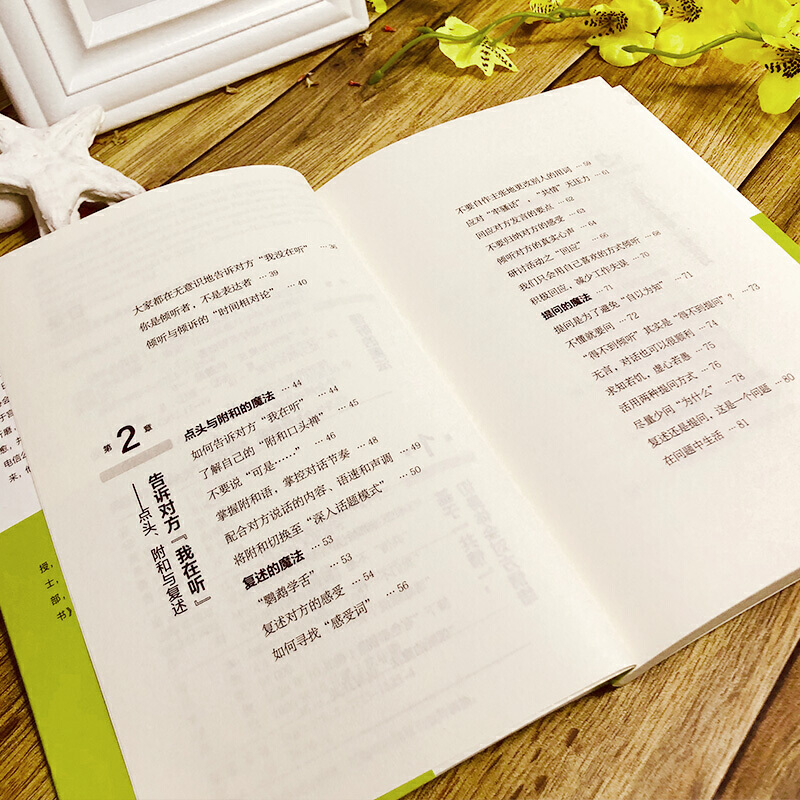 大家都在无意识地告诉对方“我没在听” … 36
你是倾听者，不是表达者 … 39
倾听与倾诉的“时间相对论” … 40
第2章
告诉对方『我在听』
——点头、附和与复述
点头与附和的魔法 … 44
如何告诉对方“我在听” … 44
了解自己的“附和口头禅” … 45
不要说“可是……” … 46
掌握附和语，掌控对话节奏 … 48
配合对方说话的内容、语速和声调 … 49
将附和切换至“深入话题模式” … 50
复述的魔法 … 53
“鹦鹉学舌” … 53
复述对方的感受 … 54
如何寻找“感受词” … 56
不要自作主张地更改别人的用词 … 59
应对“牢骚话”，“共情”无压力 … 61
回应对方发言的要点 … 62
不要归纳对方的感受 … 63
倾听对方的真实心声 … 64
研讨活动之“回应” … 66
我们只会用自己喜欢的方式倾听 … 68
积极回应，减少工作失误 … 70
提问的魔法 … 71
提问是为了避免“自以为知” … 71
不懂就要问 … 72
“得不到倾听”其实是“得不到提问”？ … 73
无言，对话也可以很顺利 … 74
求知若饥，虚心若愚 … 75
活用两种提问方式 … 76
尽量少问“为什么” … 78
复述还是提问，这是一个问题 … 80
在问题中生活 … 81
电信公
来，
授，
士，
部，
书》